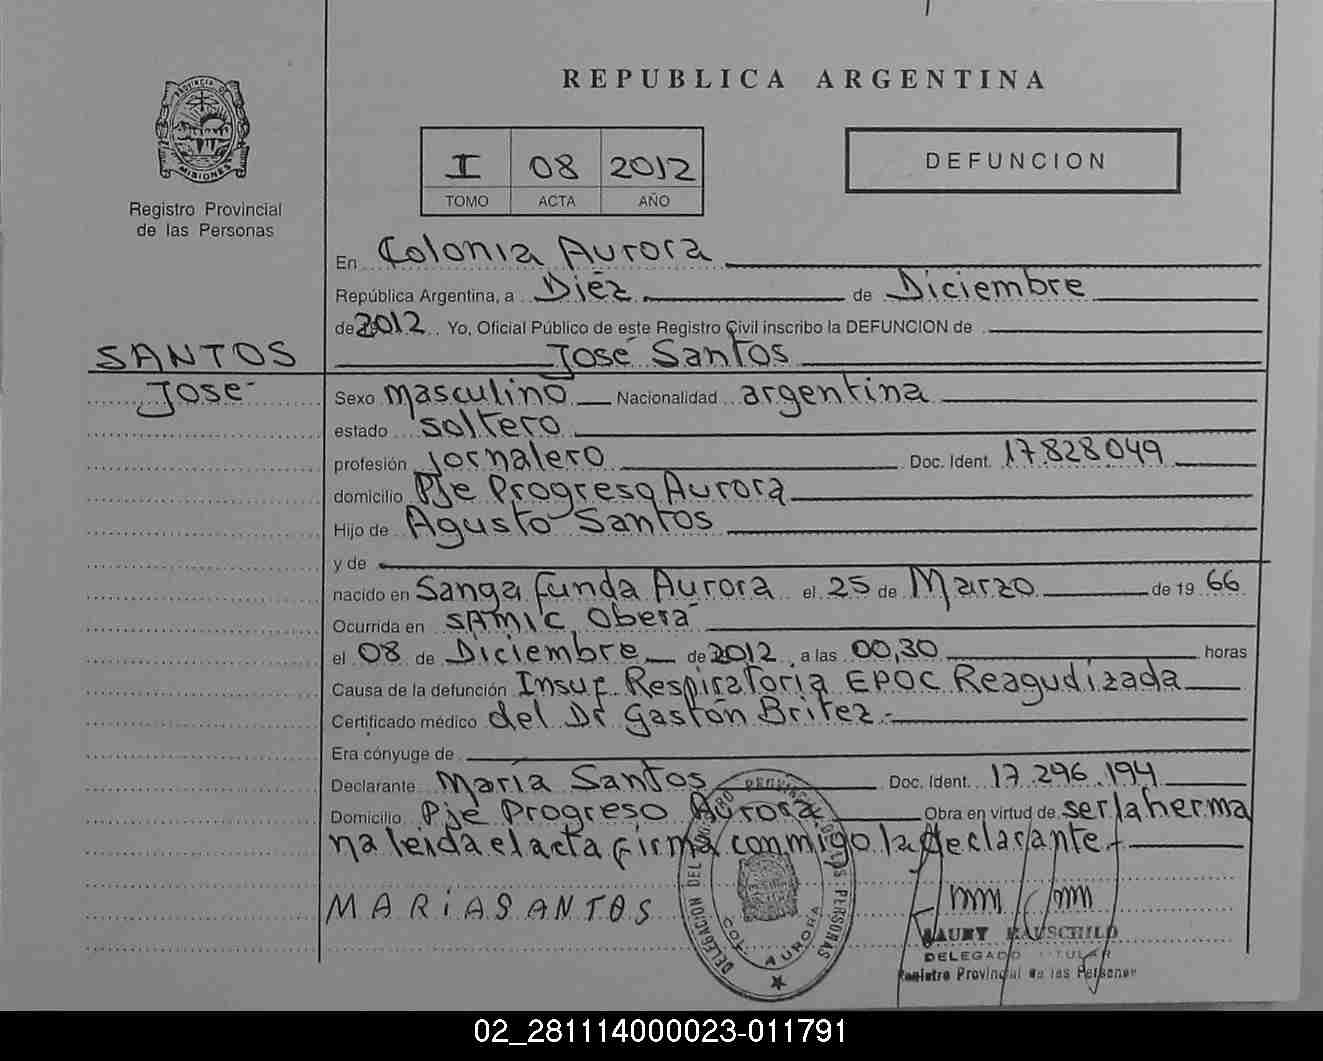 REPUBLICA ARGENTINA
PROVINCIA DE MISIONES
Registro Provincial
de las Personas
I 08 2012
TOMO ACTA AÑO
DEFUNCION
En Colonia Aurora
República Argentina, a Diéz de Diciembre
de 2012 Yo, Oficial Público de este Registro Civil inscribo la DEFUNCION de
SANTOS José Santos
José Sexo masculino Nacionalidad argentina
estado soltero
profesión Jornalero Doc. Ident. 17.828.049
domicilio Pje Progreso Aurora
Hijo de Agusto Santos
y de
nacido en Sanga Funda Aurora el 25 de Marzo de 19 66
Ocurrida en SAMIC Oberá
el 08 de Diciembre de 2012, a las 00,30 horas
Causa de la defunción Insuf Respiratoria EPOC Reagudizada
Certificado médico del Dr Gastón Britez.-
Era cónyuge de
Declarante María Santos Doc. Ident. 17.296.194
Domicilio Pje Progreso Aurora Obra en virtud de ser la herma
na leída el acta firma conmigo la declarante.-
MARiASANTOS
DELEGACION DEL REGISTRO PROVINCIAL DE LAS PERSONAS
COL. AURORA
DELEGADO TITULAR
Registro Provincial de las Personas
02_281114000023-011791